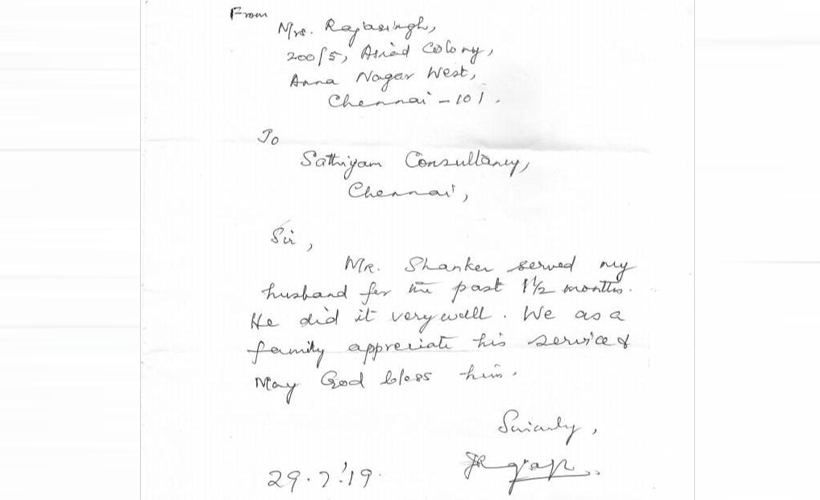 From
Mrs. Rajasingh,
200/5, Asiad Colony,
Anna Nagar West,
Chennai - 101.
To
Sathiyam Consultancy,
Chennai,
Sir,
Mr. Shanker served my
husband for the past 1 1/2 months.
He did it very well. We as a
family appreciate his service &
May God bless him.
Sincerly,
29.7.'19